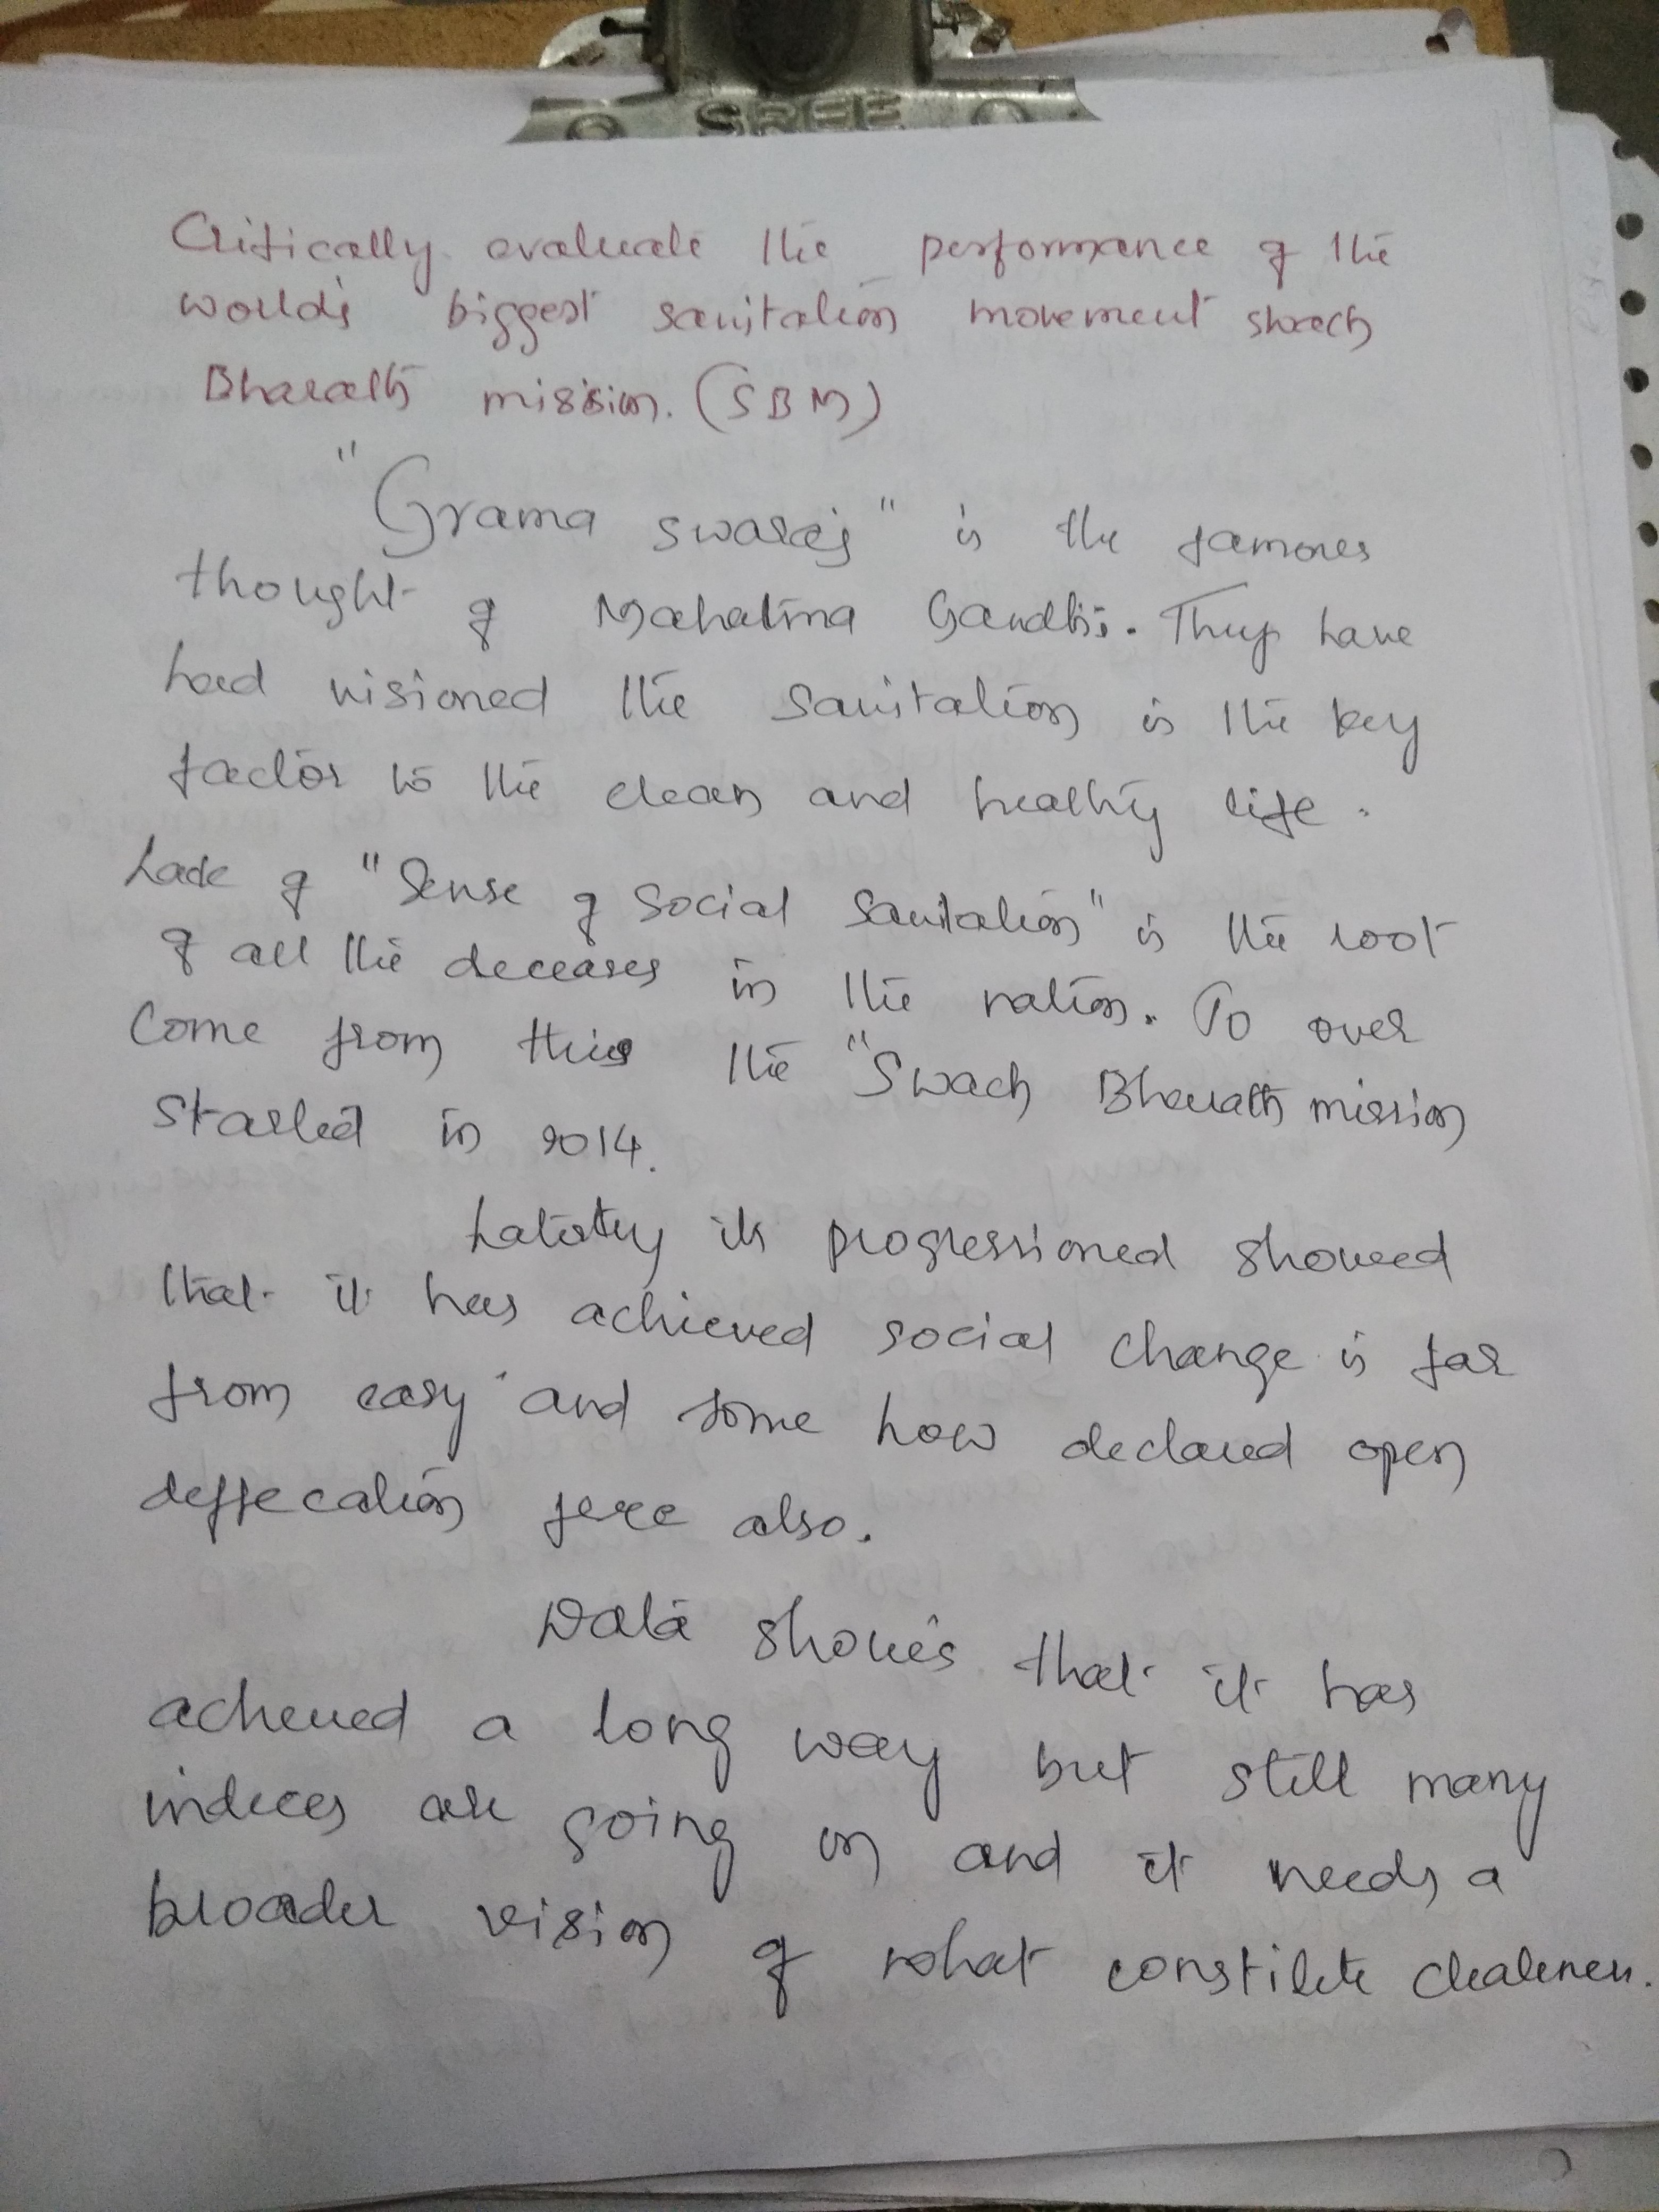 SREE
Critically evaluate the performance of the
world's biggest sanitation movement swach
Bharath mission. (SBM)
"Grama swaraj" is the famoues
thought of Mahatma Gandhi. They have
had visioned the sanitation is the key
factor to the clean and healthy life.
Lack of "Sense of Social Sanitation" is the root
of all the deceases in the nation. To over
Come from this the "Swach Bharath mission
Started in 2014.
its progressioned showed
that it has achieved social change is far
from easy and some how declared open
deffecation free also.
Data shows that it has
acheved a long way but still many
indeces are going on and it needs a
broader vision of what constitute